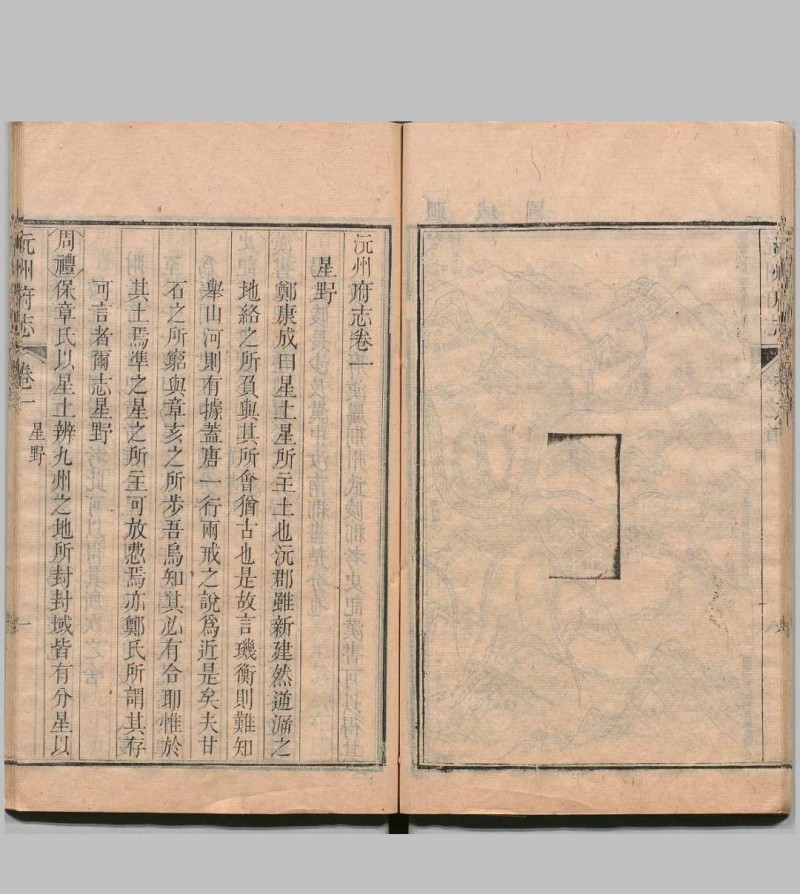 沅州府志
沅州府志卷一
星野
鄭康成曰星土星所主土也沅郡雖新建然遡游之
地絡之所負與其所會猶古也是故言璣衡則難知
舉山河則有據蓋唐一行兩戒之說為近是矣夫甘
石之所窮與章亥之所步吾烏知其必有合耶惟於
其土焉準之星之所主可放慝焉亦鄭氏所謂其存
可言者爾志星野
周禮保章氏以星土辨九州之地所封封域皆有分星以
沅州府志
卷一
星野
一